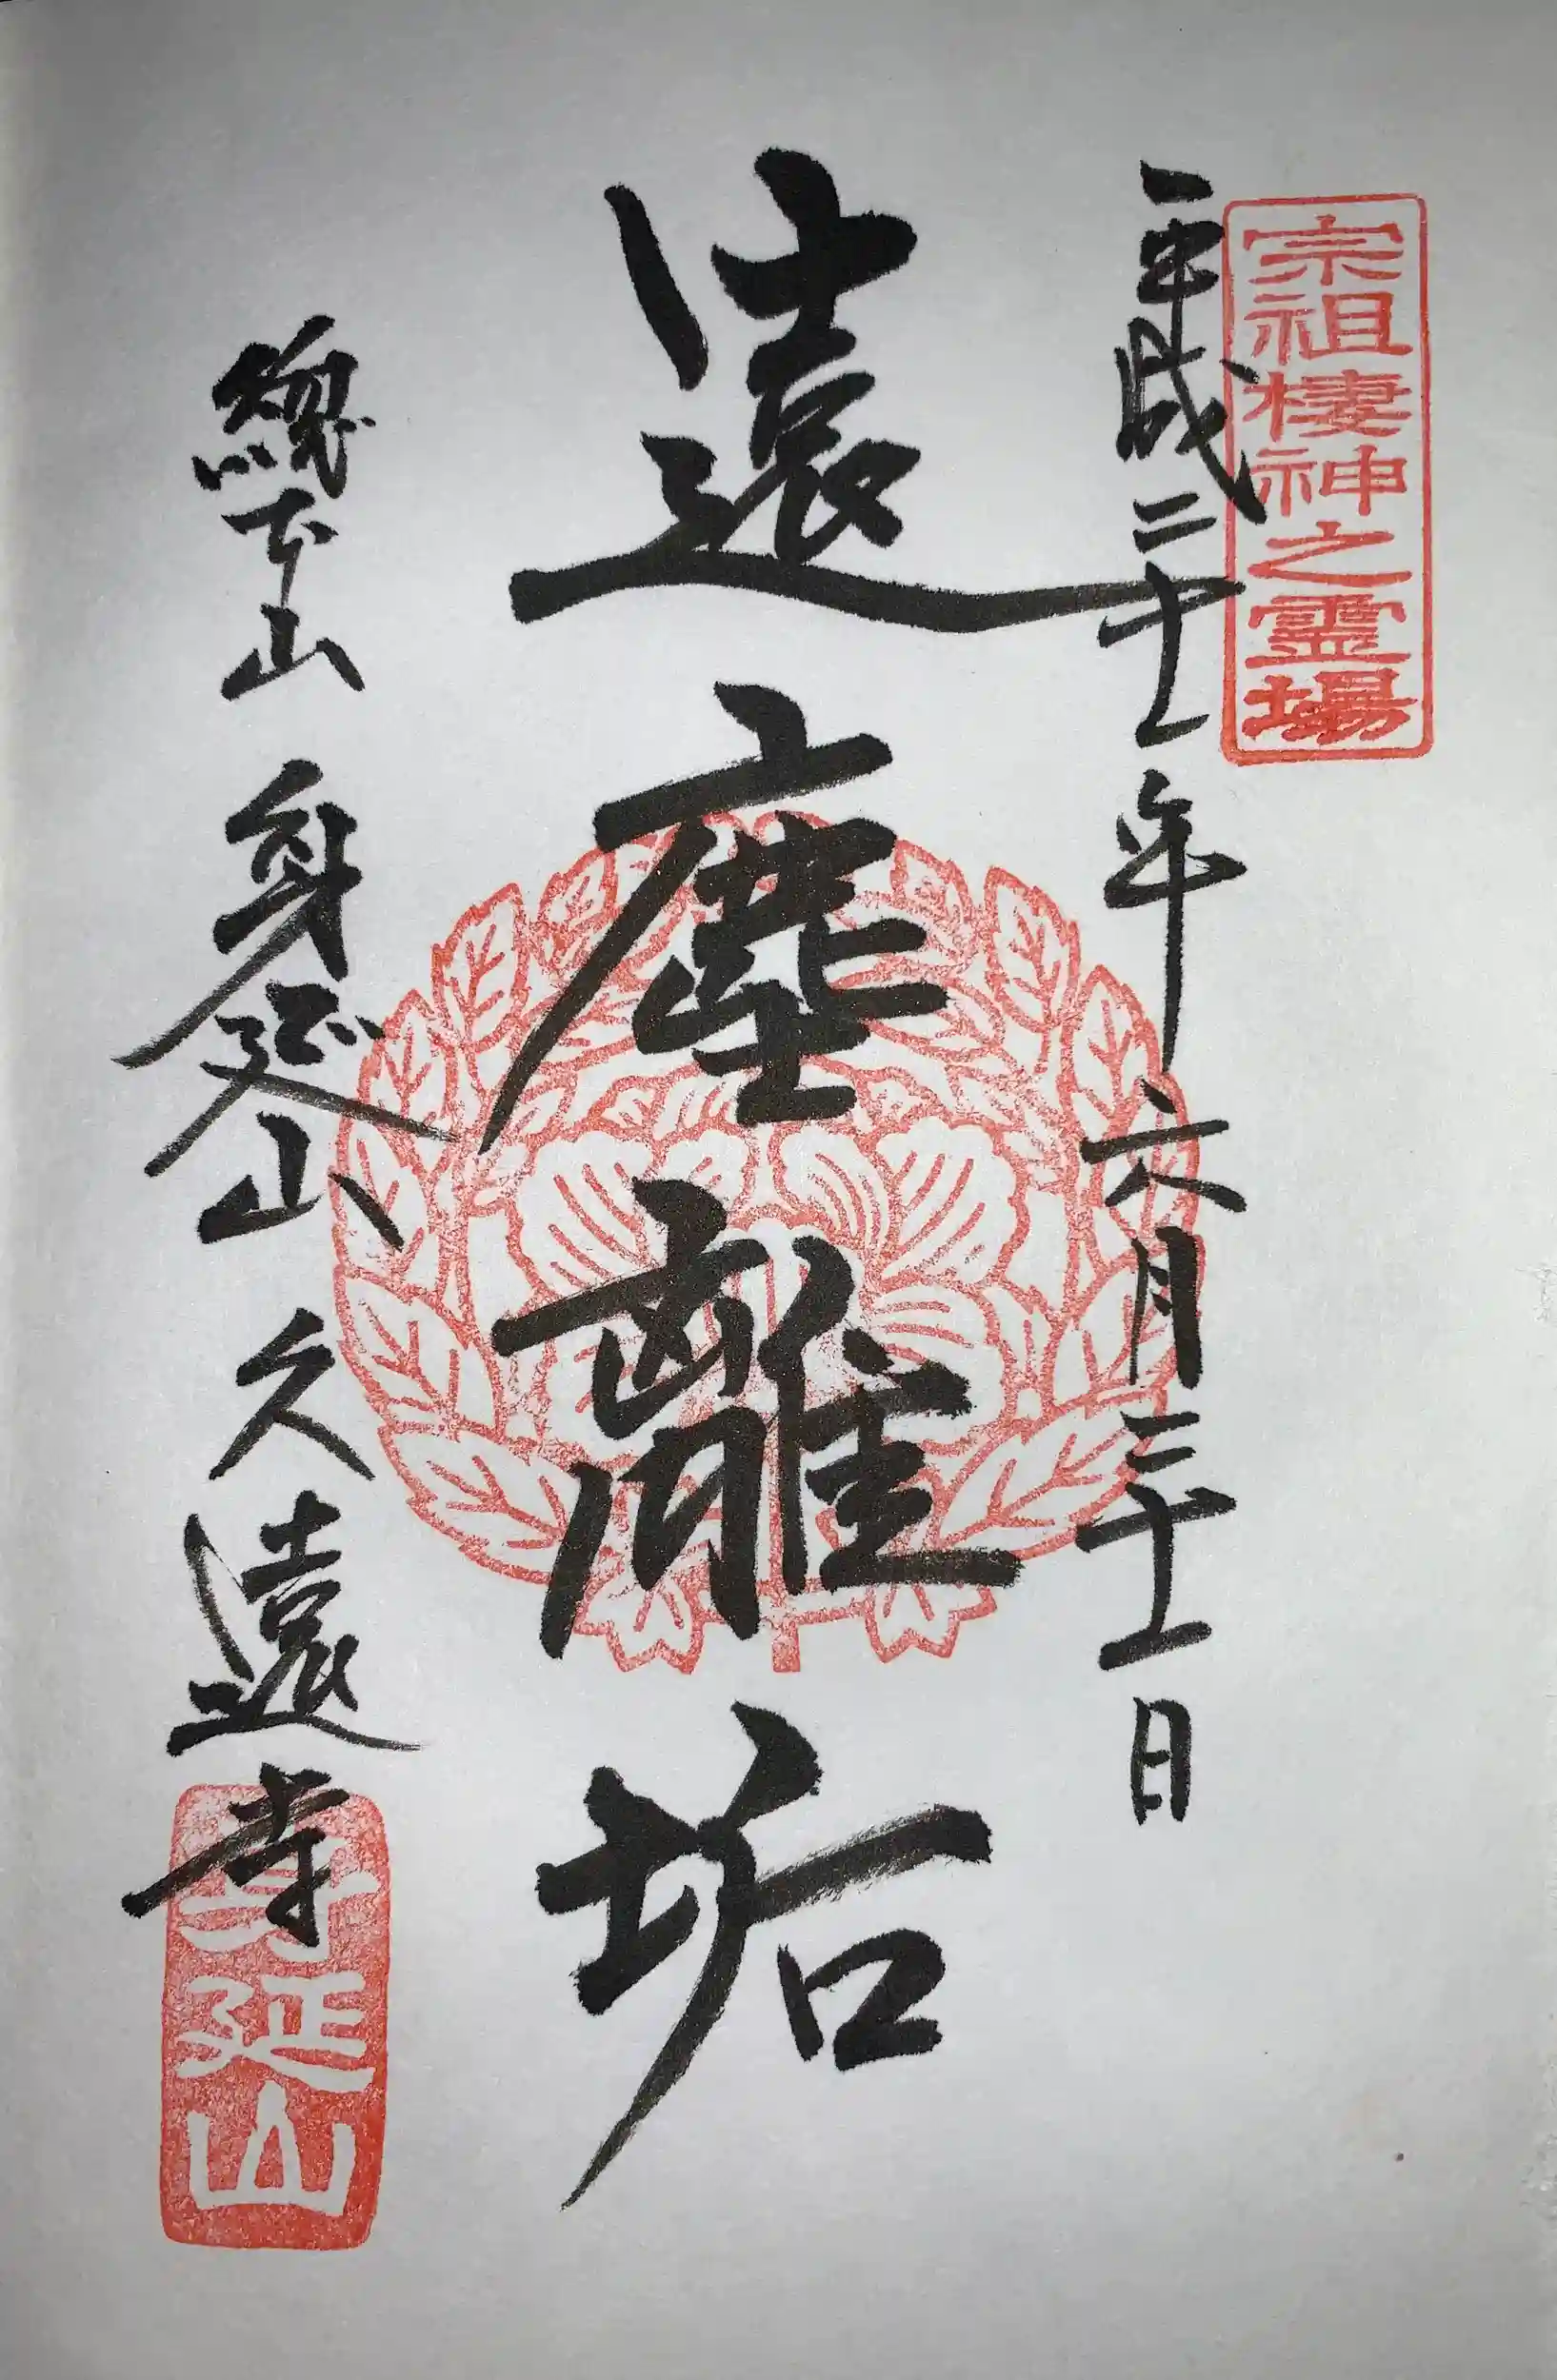 宗祖棲神之霊場
平成二十一年六月二十一日
遠塵離垢
總本山 身延山 久遠寺
身延山